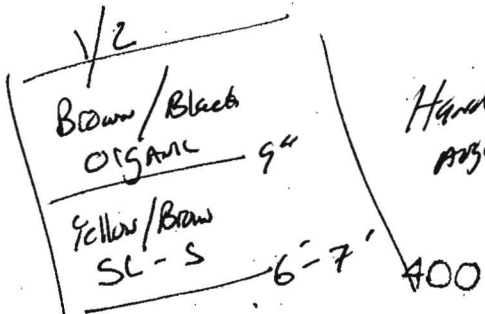 1/2
Brown/Black
Organic 9"
Yellow/Brown
SL-S 6'-7'
Hand
400